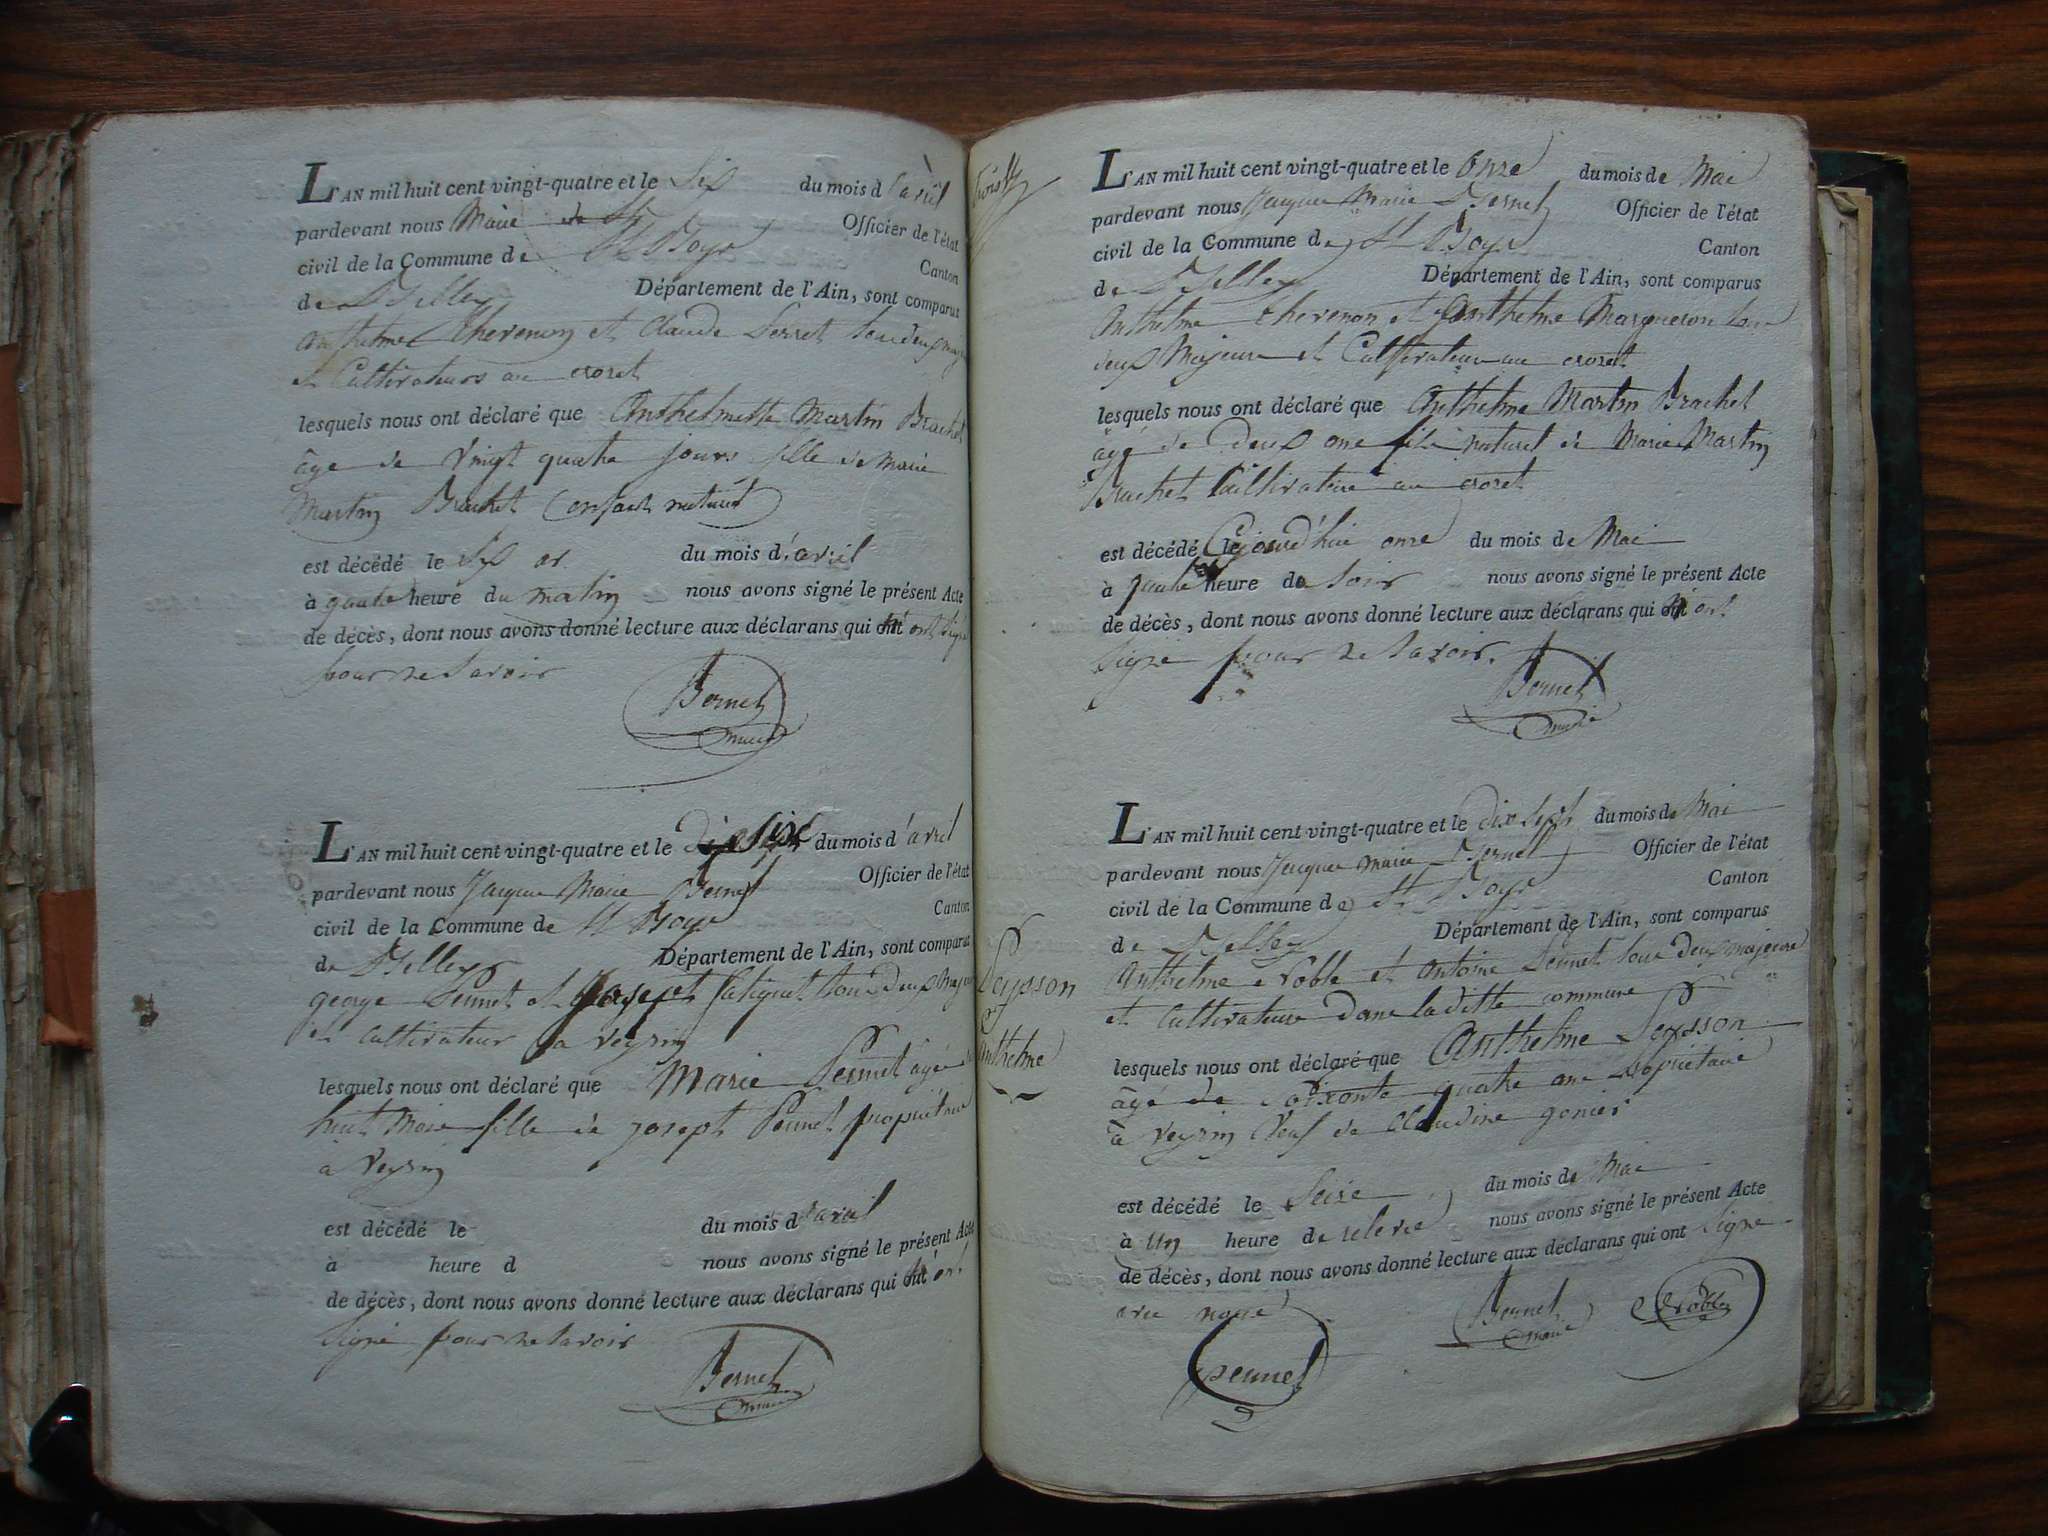 L'AN mil huit cent vingt-quatre et le six du mois d'avril
pardevant nous Maire de St Officier de l'état
civil de la Commune de St Boys Canton
de Belley Département de l'Ain, sont comparus
anthelme thevenon et Claude Perret tous deux
et Cultivateurs au crozet
lesquels nous ont déclaré que Anthelmette Martin Brachet
âge de vingt quatre jours fille de marie
Martin Brachet enfant naturel
est décédé le six du mois d'avril
à quatre heure du matin nous avons signé le présent Acte
de décès, dont nous avons donné lecture aux déclarans qui n'ont signé
pour ne savoir
Bornet
maire
L'AN mil huit cent vingt-quatre et le dix six du mois d'avril
pardevant nous Jacques Marie Bornet Officier de l'état
civil de la Commune de St Boys Canton
de Belley Département de l'Ain, sont comparus
george Peunet et joseph tous deux
et cultivateur a veyrin
lesquels nous ont déclaré que Marie Peunet agée de
huit Mois fille de joseph Peunet propriétaire
a veyrin
est décédé le du mois d'avril
à heure d nous avons signé le présent Acte
de décès, dont nous avons donné lecture aux déclarans qui n'ont
signé pour ne savoir
Bornet
maire
L'AN mil huit cent vingt-quatre et le Onze du mois de Mai
pardevant nous Jacques Marie Bornet Officier de l'état
civil de la Commune de St Boys Canton
de Belley Département de l'Ain, sont comparus
Anthelme thevenon et Anthelme Marqueron tous
deux Majeurs et Cultivateurs au crozet
lesquels nous ont déclaré que Anthelme Martin Brachet
âgé de deux ans fils naturel de Marie Martin
Brachet Cultivatrice au crozet
est décédé Cejourd'hui onze du mois de Mai
à quatre heure de soir nous avons signé le présent Acte
de décès, dont nous avons donné lecture aux déclarans qui n'ont
signé pour ne savoir.
Bornet
maire
Peysson
Anthelme
L'AN mil huit cent vingt-quatre et le dix sept du mois de Mai
pardevant nous Jacques marie Bornet Officier de l'état
civil de la Commune de St Boys Canton
de Belley Département de l'Ain, sont comparus
Anthelme et antoine Peunet tous deux majeurs
et cultivateurs dans laditte commune
lesquels nous ont déclaré que Anthelme Peysson
âgé de soixante quatre ans propriétaire
à veyrin veuf de Claudine gonier
est décédé le Seize du mois de Mai
à un heure de relevé nous avons signé le présent Acte
de décès, dont nous avons donné lecture aux déclarans qui ont signé
avec nous
Bornet
maire
peunet